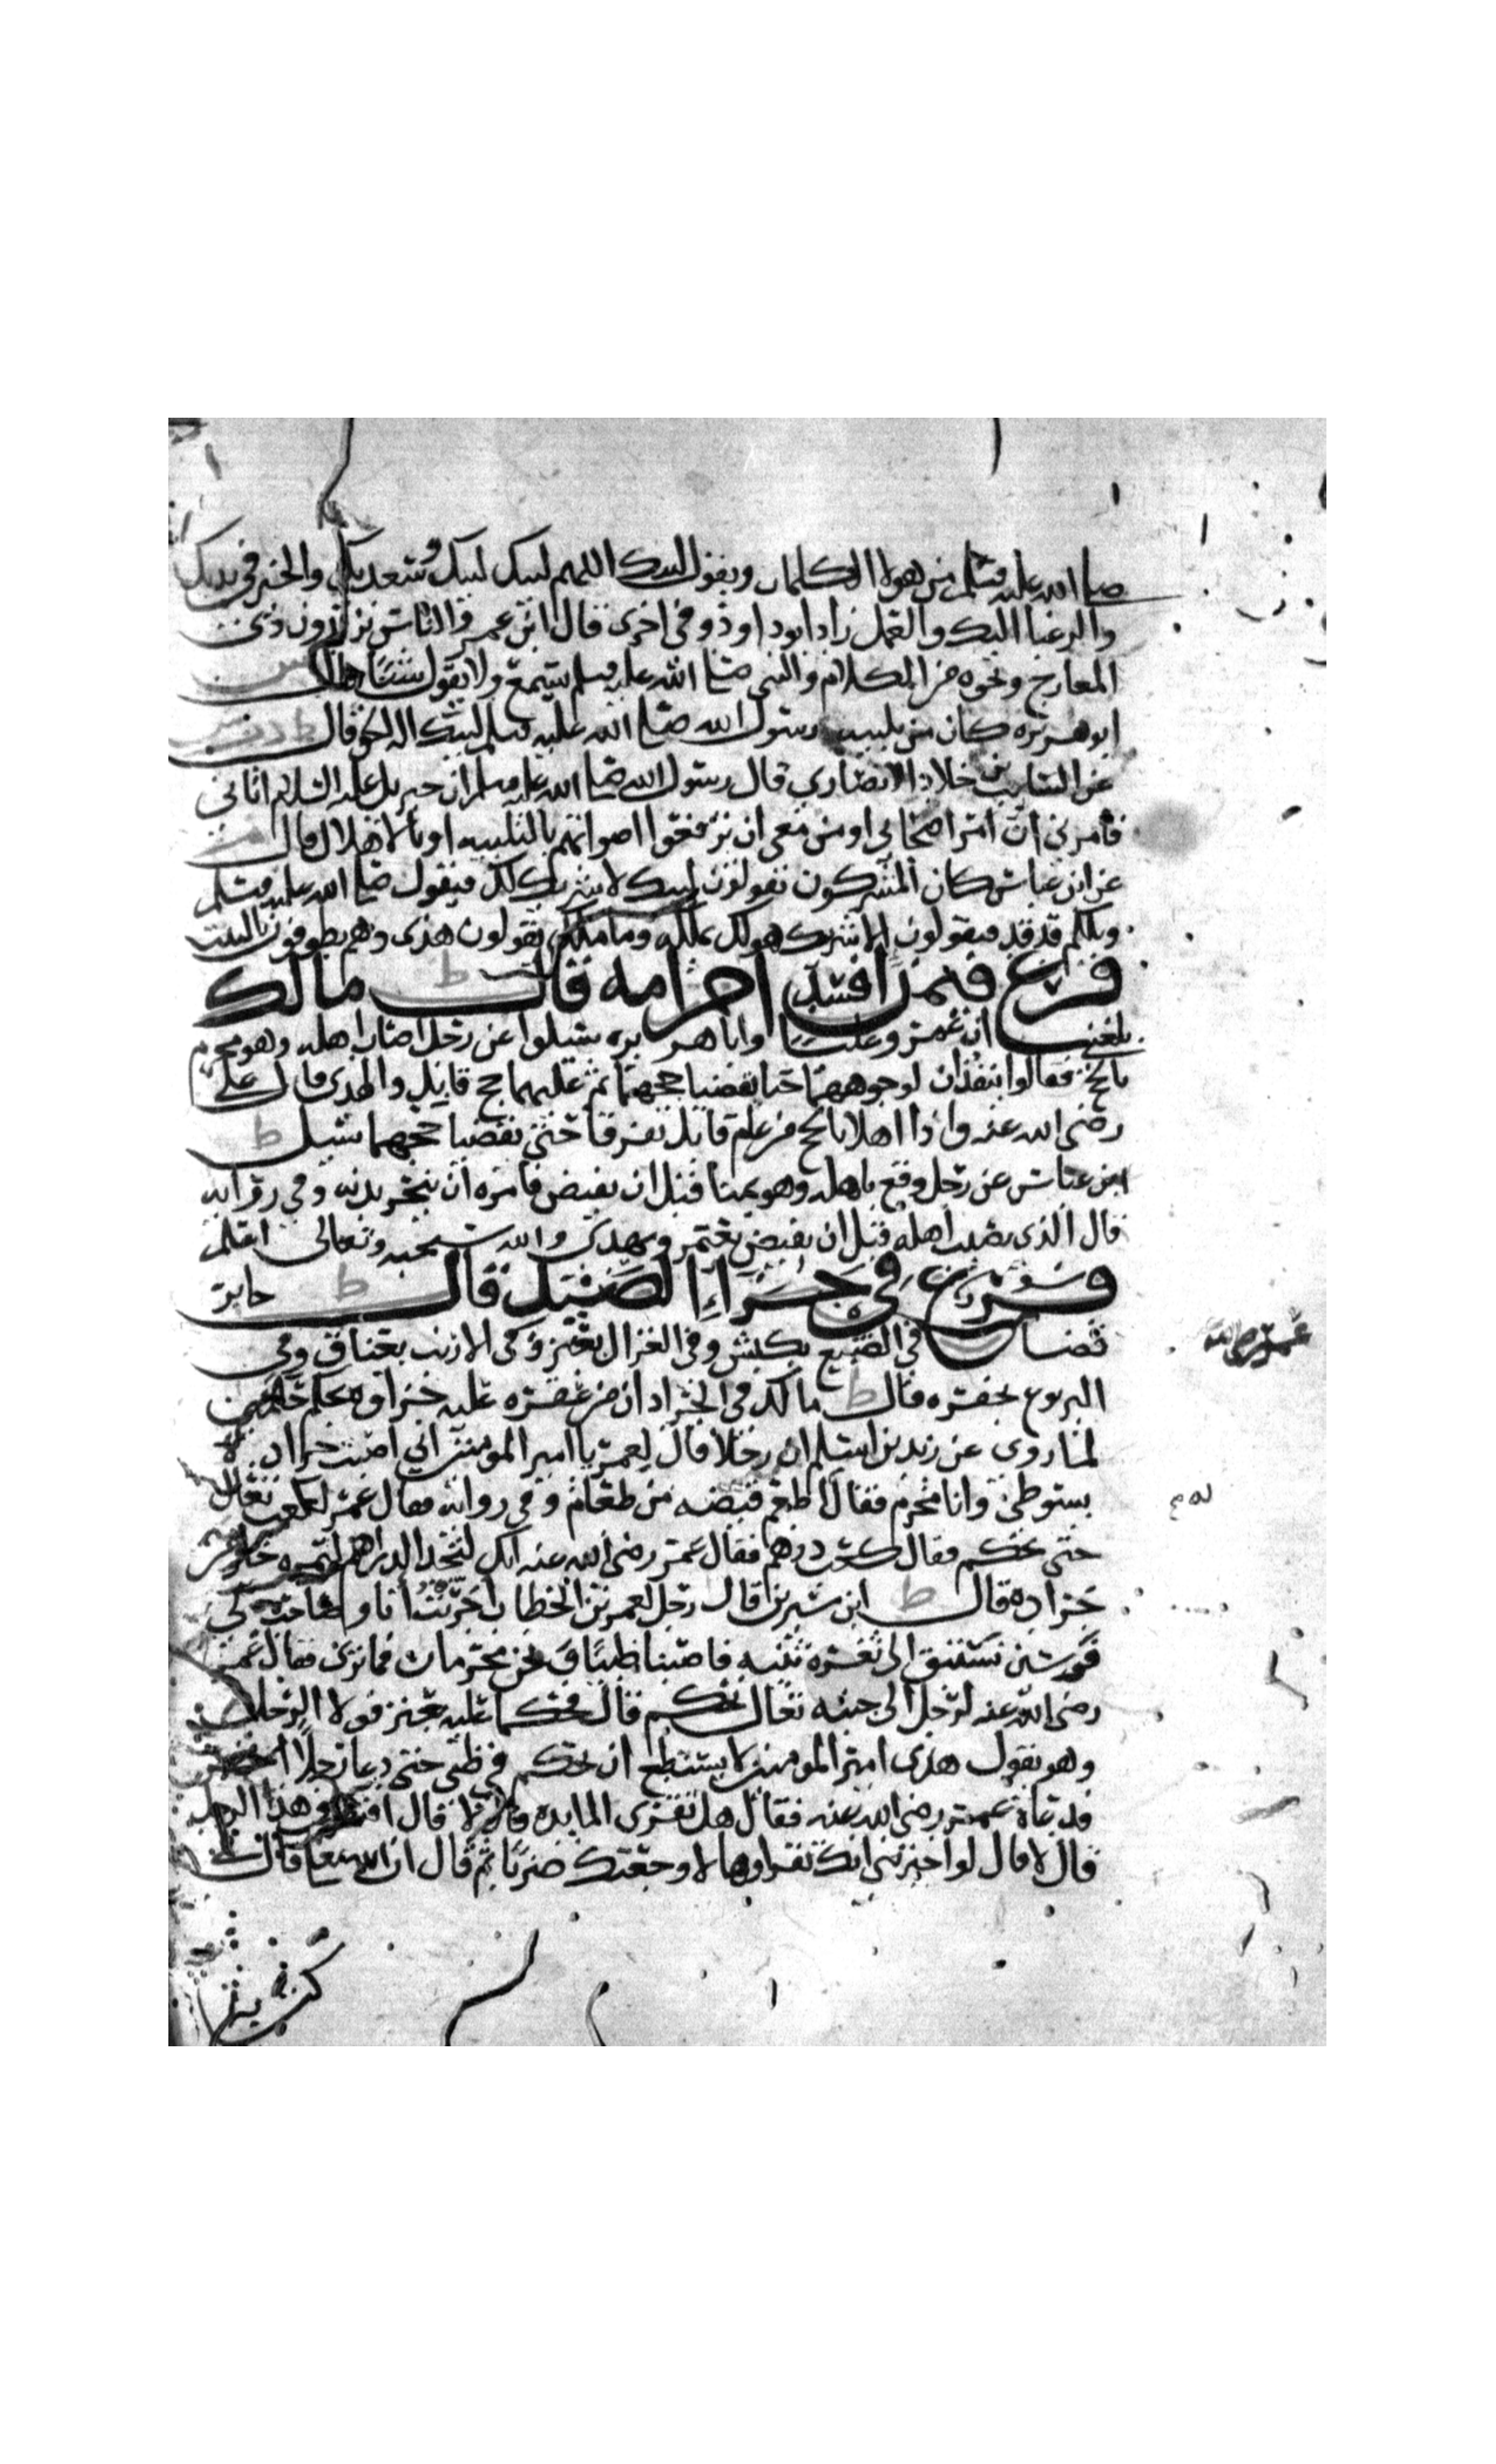 صلى الله عليه وسلم من هولا الكلمات ويقول لبيك اللهم لبيك لبيك وسعديك والخير في يديك
والرغبا اليك والعمل زاد ابوداوذ وفي اخرى قال ابن عمر والناس يزيدون ذي
المعارج ونحوه من الكلام والنبي صلى الله عليه وسلم يسمع ولا يقول شيًا قال س
ابوهريره كان من تلبيه رسول الله صلى الله عليه وسلم لبيك اله الحق قال
عن السايب بن خلاد الانصاري قال رسول الله صلى الله عليه وسلم ان جبريل عليه السلام اتاني
فأمرني ان امر اصحابي او من معي ان يرفعوا اصواتهم بالتلبيه او بالاهلال قال
عن ابن عباس كان المشركون يقولون لبيك لا شريك لك فيقول صلى الله عليه وسلم
ويلكم قد قد فيقولون الا شريك هو لك تملكه وما ملك يقولون هذى وهم يطوفون بالبيت
فرع فيمن افسد احرامه قال ط مالك
بلغني ان عمر وعليًا وابا هريره سيلوا عن رجل اصاب اهله وهو محرم
بالحج فقالوا ينفذان لوجوههما حتا يقضيا حجهما ثم عليهما حج قابل والهدى قال علي
رضى الله عنه واذا اهلا بالحج من عام قابل تفرقا حتى يقضيا حجهما سيل ط
ابن عباس عن رجل وقع باهله وهو بمنا قبل ان يفيض فامره ان ينحر بدنه وفي روايه
قال الذي يصيب اهله قبل ان يفيض يعتمر ويهدي والله سبحنه وتعالى اعلم
فرع في جزاء الصيد قال ط جابر
قضا في الضبع بكبش وفي الغزال بعنز وفى الارنب بعناق وفي
عمر رضى الله
اليربوع بجفره قال ط مالك في الجراد ان من عقره عليه جزاوه بحكم
لما روى عن زيد بن اسلم ان رجلا قال لعمر يا امير المومنين اني اصبت جرادة
بسوطي وانا محرم فقال اطعم قبضه من طعام وفي روايه فقال عمر لكعب تعال
حتى نحكم فقال كعب درهم فقال عمر رضى الله عنه انك لتجد الدراهم لتمره خير من
جراده قال ط ابن سيرين قال رجل لعمر بن الخطاب اجريت انا وصاحب لي
فرسين نستبق الى ثغره ثنيه فاصبنا ظبيًا ونحن محرمان فما ترى فقال عمر
رضى الله عنه لرجل الى جنبه تعال نحكم قال فحكما عليه بعنز فولا الرجل
وهو يقول هذى امير المومنين لا يستطيع ان يحكم في ظبي حتى دعا رجلا
فدعاه عمر رضى الله عنه فقال هل تقرى المايده قال لا قال هذا الرجل
قال لا قال لو اخبرتني انك تقراوها لاوجعتك ضربًا ثم قال ان الله تعالى قال